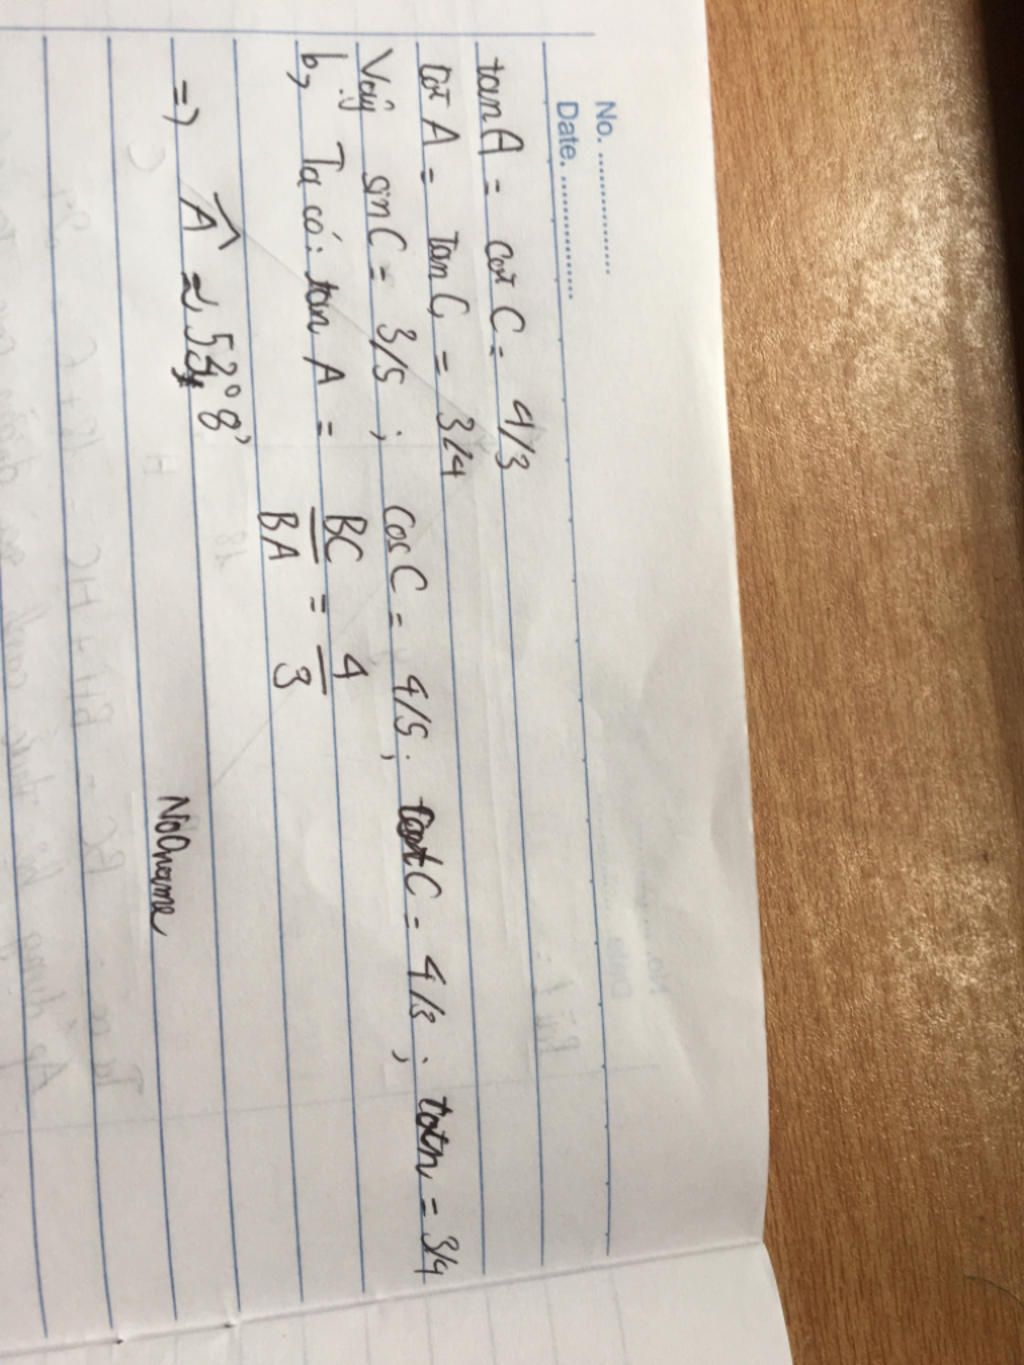 No. ................
Date. ................
tan A = cot C = 4/3
cot A = tan C = 3/4
Vậy sin C = 3/5 ; cos C = 4/5 ; cot C = 4/3 ; = 3/4
b, Ta có: tan A = BC/BA = 4/3
=> Â ≈ 53°8'
NoOname